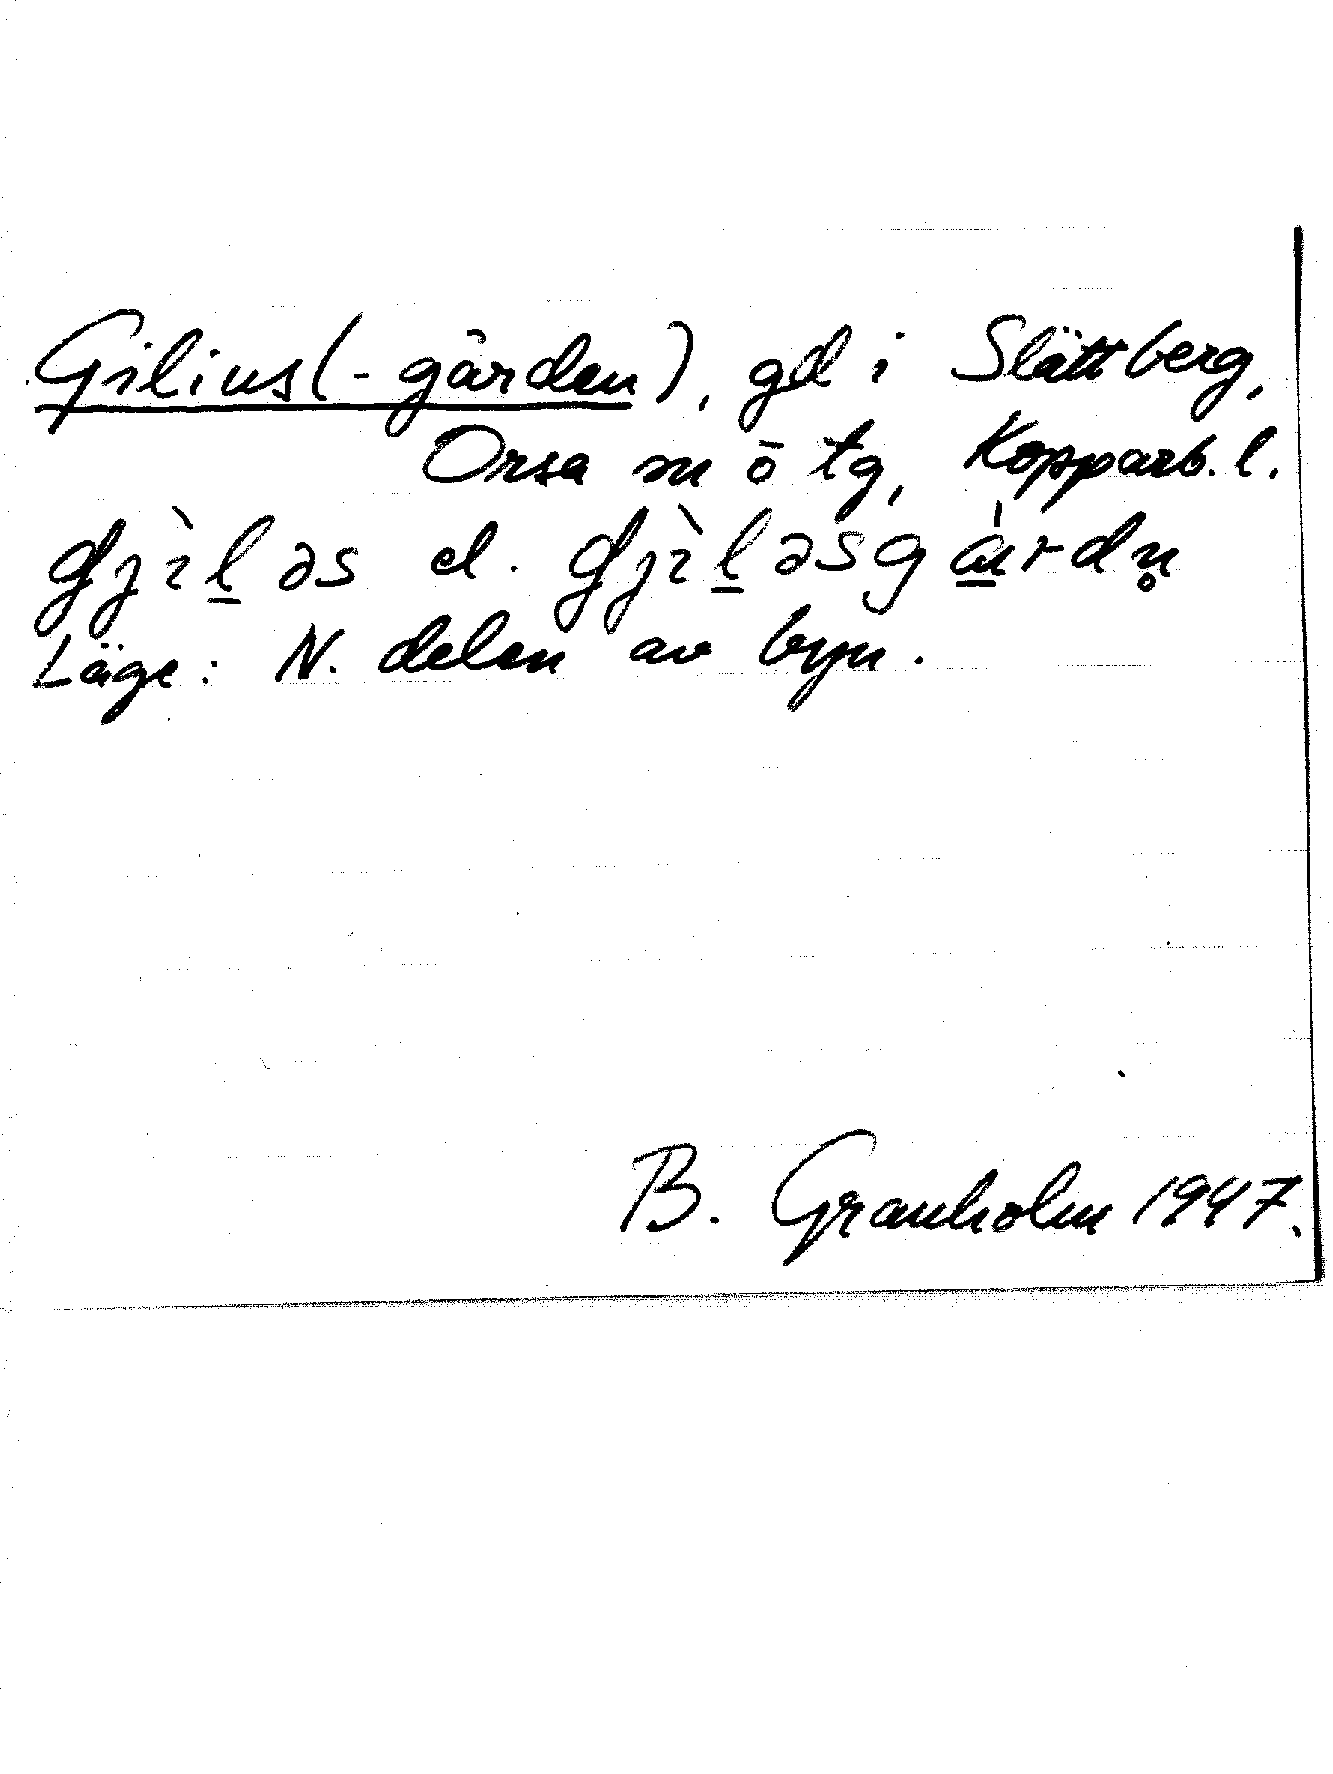 Gilius(-gården), gd i Slättberg,
Orsa m ō tg, Kopparb. l.
ɠjìḻəs el. ɠjìḻəsgàrdn̥
Läge: N. delen av byn.
B. Granholm 1947.